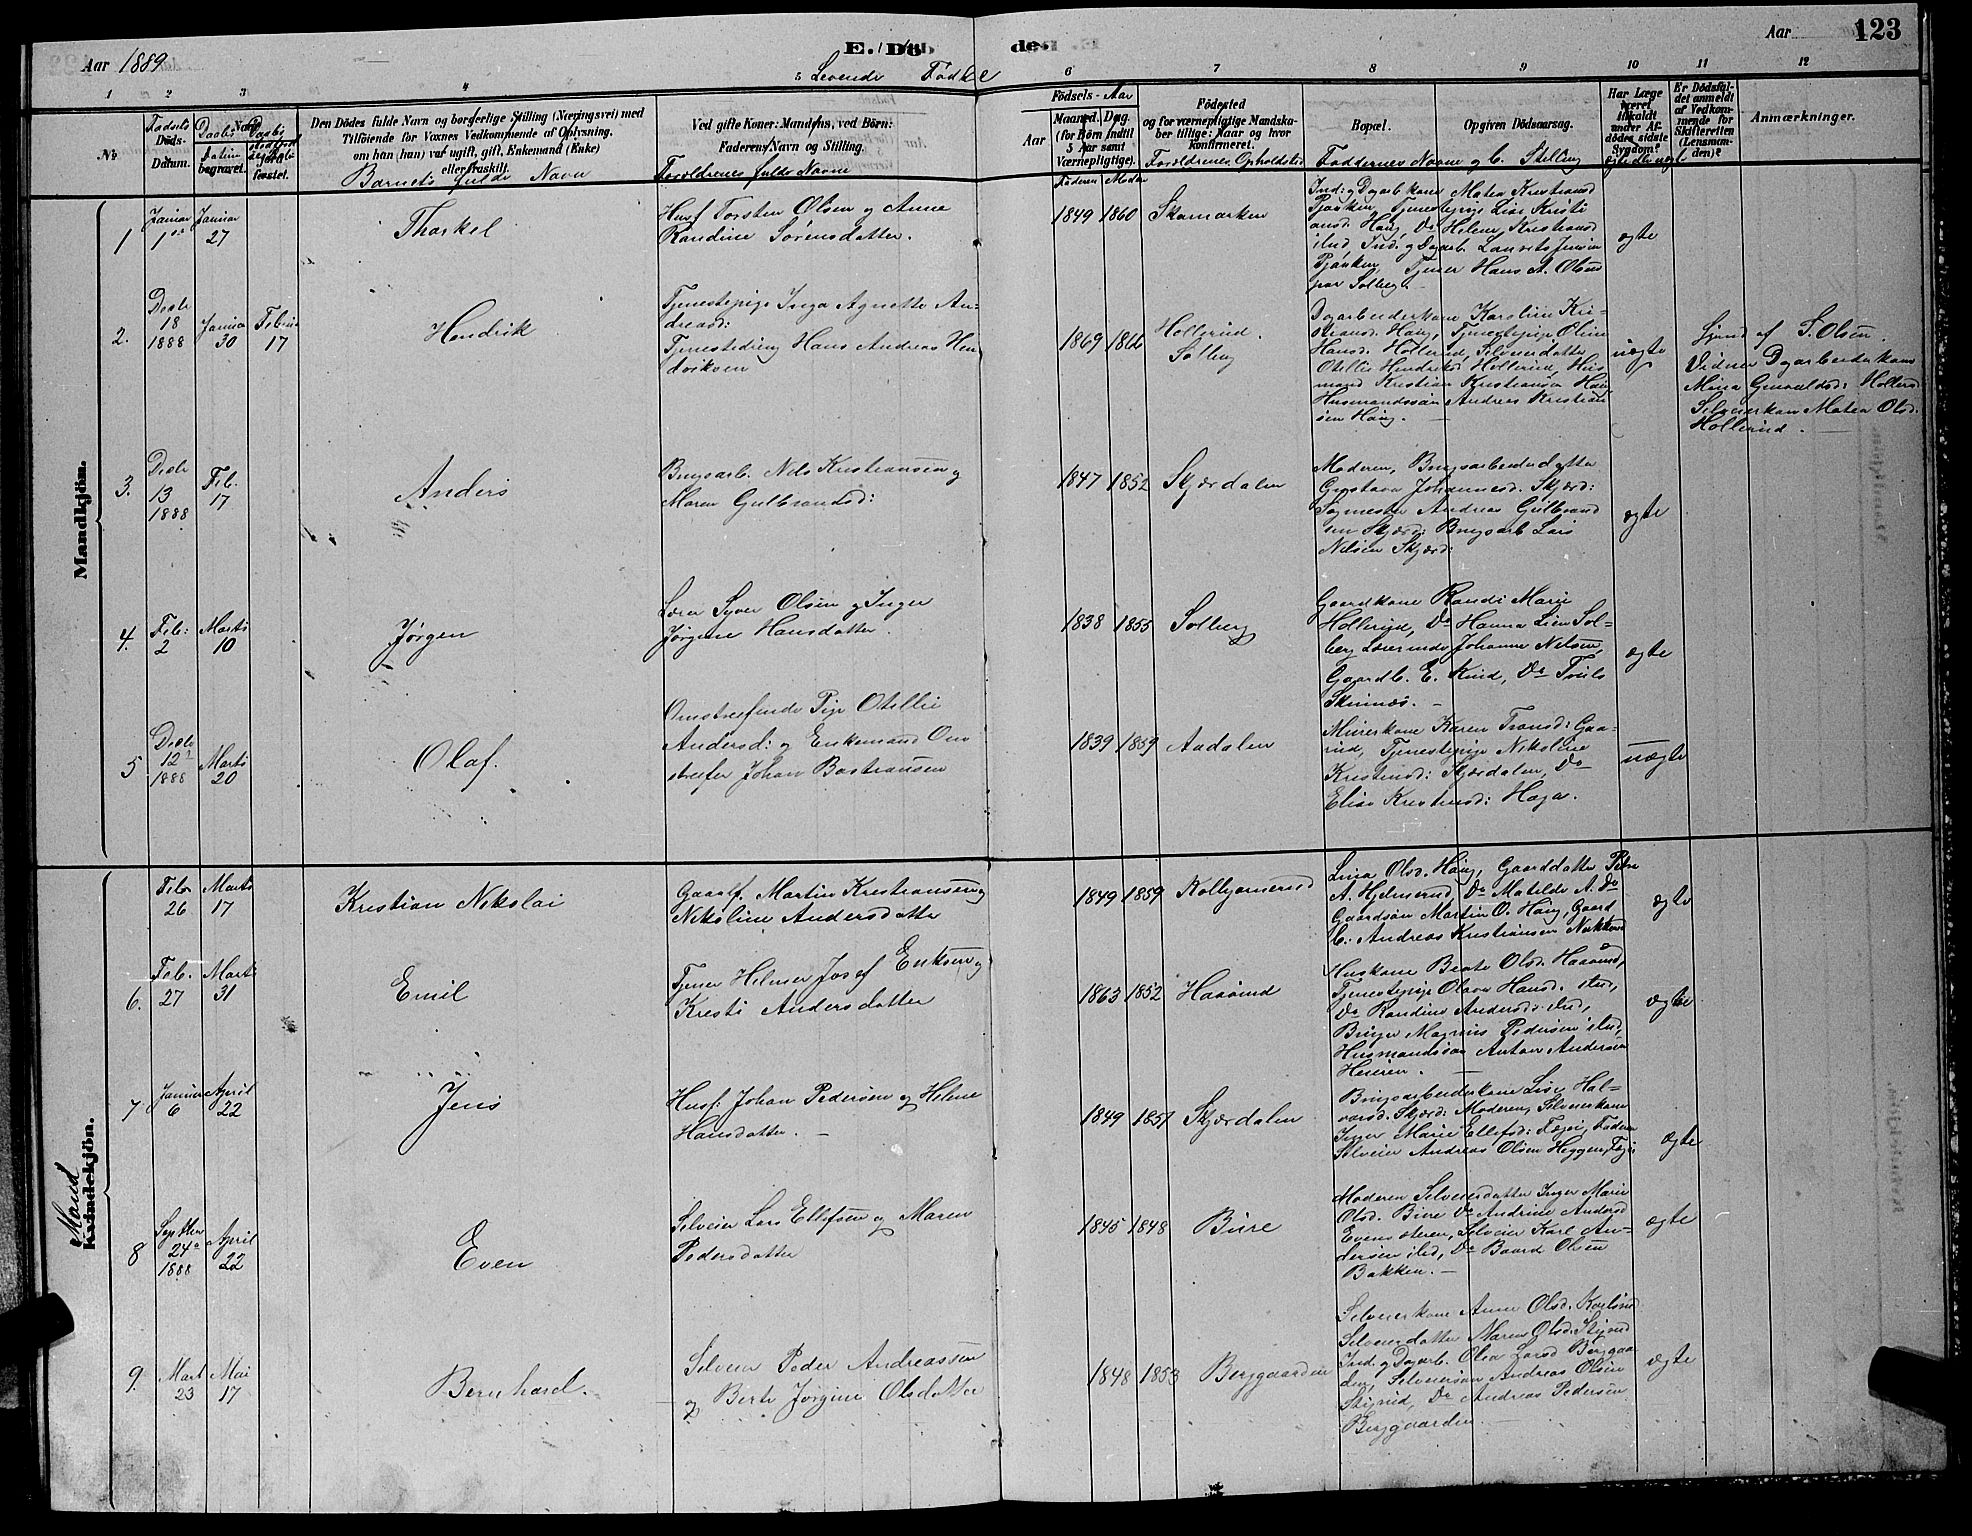 Aar 1889
E. Dö de.
Levende Födte
Aar 123
1 2 3 4 5 6 7 8 9 10 11 12
No
Födsels
Döds-
Datum.
Datum
begravet.
Den Dödes fulde Navn og borgerlige Stilling (Næringsvei) med
Tilföiende for Voxnes Vedkommende af Oplysning,
om han (hun) var ugift, gift, Enkemand (Enke)
eller fraskilt.
Barnets fulde Navn
Ved gifte Koner: Mandens, ved Börn:
Faderens Navn og Stilling.
Forældrenes fulde Navne
Födsels-Aar
Aar
Maaned. Dag.
(for Börn indtil
5 Aar samt
Værnepligtige).
Faderen Moder
Födested
og for værnepligtige Mandska-
ber tillige: Naar og hvor
konfirmeret.
Forældrenes Opholdsted
Bopæl.
Opgiven Dödsaarsag.
Faddernes Navne og b. Stilling
Har Læge
været
tilkaldt
under Af-
dödes sidste
Sygdom?
ægte el. uægte
Er Dödsfal-
det anmeldt
af Vedkom-
mende for
Skifteretten
(Lensman-
den)?
Anmærkninger.
Mandkjön.
1
Januar
1ste
Januar
27
Thorkel
Husf Torsten Olsen og Anne
Randine Sørensdatter.
1849 1860
Ind. og Dgarbkone Matea Kristiansd
Tjenestepige Lise Kristi
ansd. Haug, Do Helene Kristiansd
ibid, Ind. og Dgarb. Lauritz Jensen
Tjener Hans A. Olsen
Solberg.
ægte
2.
Decbr
18
1888
Januar
30
Februar
17
Hendrik
Tjenestepige Inga Agnette An-
dreasd:
Tjenestedreng Hans Andreas Hen
driksen
1869 1866
Hollerud.
Solberg
Dgarbeiderkone Karoline Kri-
stiansd. Haug, Tjenestepige Oline
Hansd. Hollerud, Selveierdatter
Otellie Hendriksd Hollerud, Hus
mand Kristian Kristiansen Haug
Husmandssøn Andreas Kristian
sen Haug.
uægte
S. Olsen.
Vidner Dgarbeiderkone
Mina Hollerud
Selveierkone Matea Olsd.
Hollerud.
3.
Decbr
13
1888
Feb.
17
Anders
Brugsarb. Nils Kristiansen og
Maren Gulbrandsd:
1847 1852
Skjærdalen
Moderen, Brugsarbeiderdatter
Gustava Johannesd. Skjærd:
Sagmester Andreas Gulbrand
sen Skjærd: Brugsarb Lars
Nilsen Skjærd:
ægte
4.
Feb:
2
Marts
10
Jørgen
Lærer Syver Olsen og Inger
Jørgine Hansdatter.
1838 1855
Solberg
Gaardkone Randi Marie
Hollerud, Do Hanna Lien Sol-
berg Lærerinde Johanne Nilsen,
Gaardb. E. Rud, Do Truls
Skinnes.
ægte
5
Decbr
12te
1888
Marts
20
Olaf.
Omstreifende Pige Otellie
Andersd: og Enkemand Om
streifer Johan Bastiansen
1839 1859
Aadalen
Karen Gaa-
rud, Tjenestepige Nikoline
Kristensd: Skjærdalen, Do
Elise Kristensd: Haga.
uægte
Mand
Kvindekjön.
Febr
26
Marts
17
Kristian Nikolai
Gaardf. Martin Kristiansen og
Nikoline Andersdatter
1849 1859
Kolbjørnsrud
Lina Olsd. Haug, Gaarddatter
A. Hjelmerud, Do Matilde A. Do
Gaardsøn Martin O. Haug, Gaard
b. Andreas Kristiansen
ægte
6.
Feb.
27
Marts
31
Emil
Tjener Helmer Josef Eriksen og
Kresti Andersdatter
1863 1852
Huskone Beate Olsd.
Tjenestepige Olava Hansd. ibid,
Do Randine Andersd: ibid,
Magnus Pedersen ibid,
Husmandssøn Anton Andersen
ægte
7
Januar
6
April
22
Jens
Husf: Johan Pedersen og Helene
Hansdatter.
1849 1851
Skjærdalen
Brugsarbeiderkone Lise Hal-
vorsd. Skjærd: Moderen, Selveierkone
Inger Marie Ellefsd: Fægri, Faderen
Selveier Andreas Olsen Heggen,
ægte
8
Septbr
24de
1888
April
22
Even
Selveier Lars Ellefsen og Maren
Pedersdatter
1845 1848
Bure
Moderen Selveierdatter Inger Marie
Olsd. Bure Do Andrine Andersd
Selveier Karl An-
dersen ibid, Do Baard Olsen
Bakken.
ægte
9.
Mart
23
Mai
17
Bernhard.
Selveier Peder Andreassen
og Berte Jørgine Olsdatter
1848 1853
Berggaarden
Selveierkone Anne Olsd.
Selveierdatter Maren Olsd. Stigrud
Ind. og Dgarb. Olea Larsd Berggaar
den, Selveiersøn Andreas Olsen
Stigrud, Do Andreas Pedersen
Berggaarden
ægte